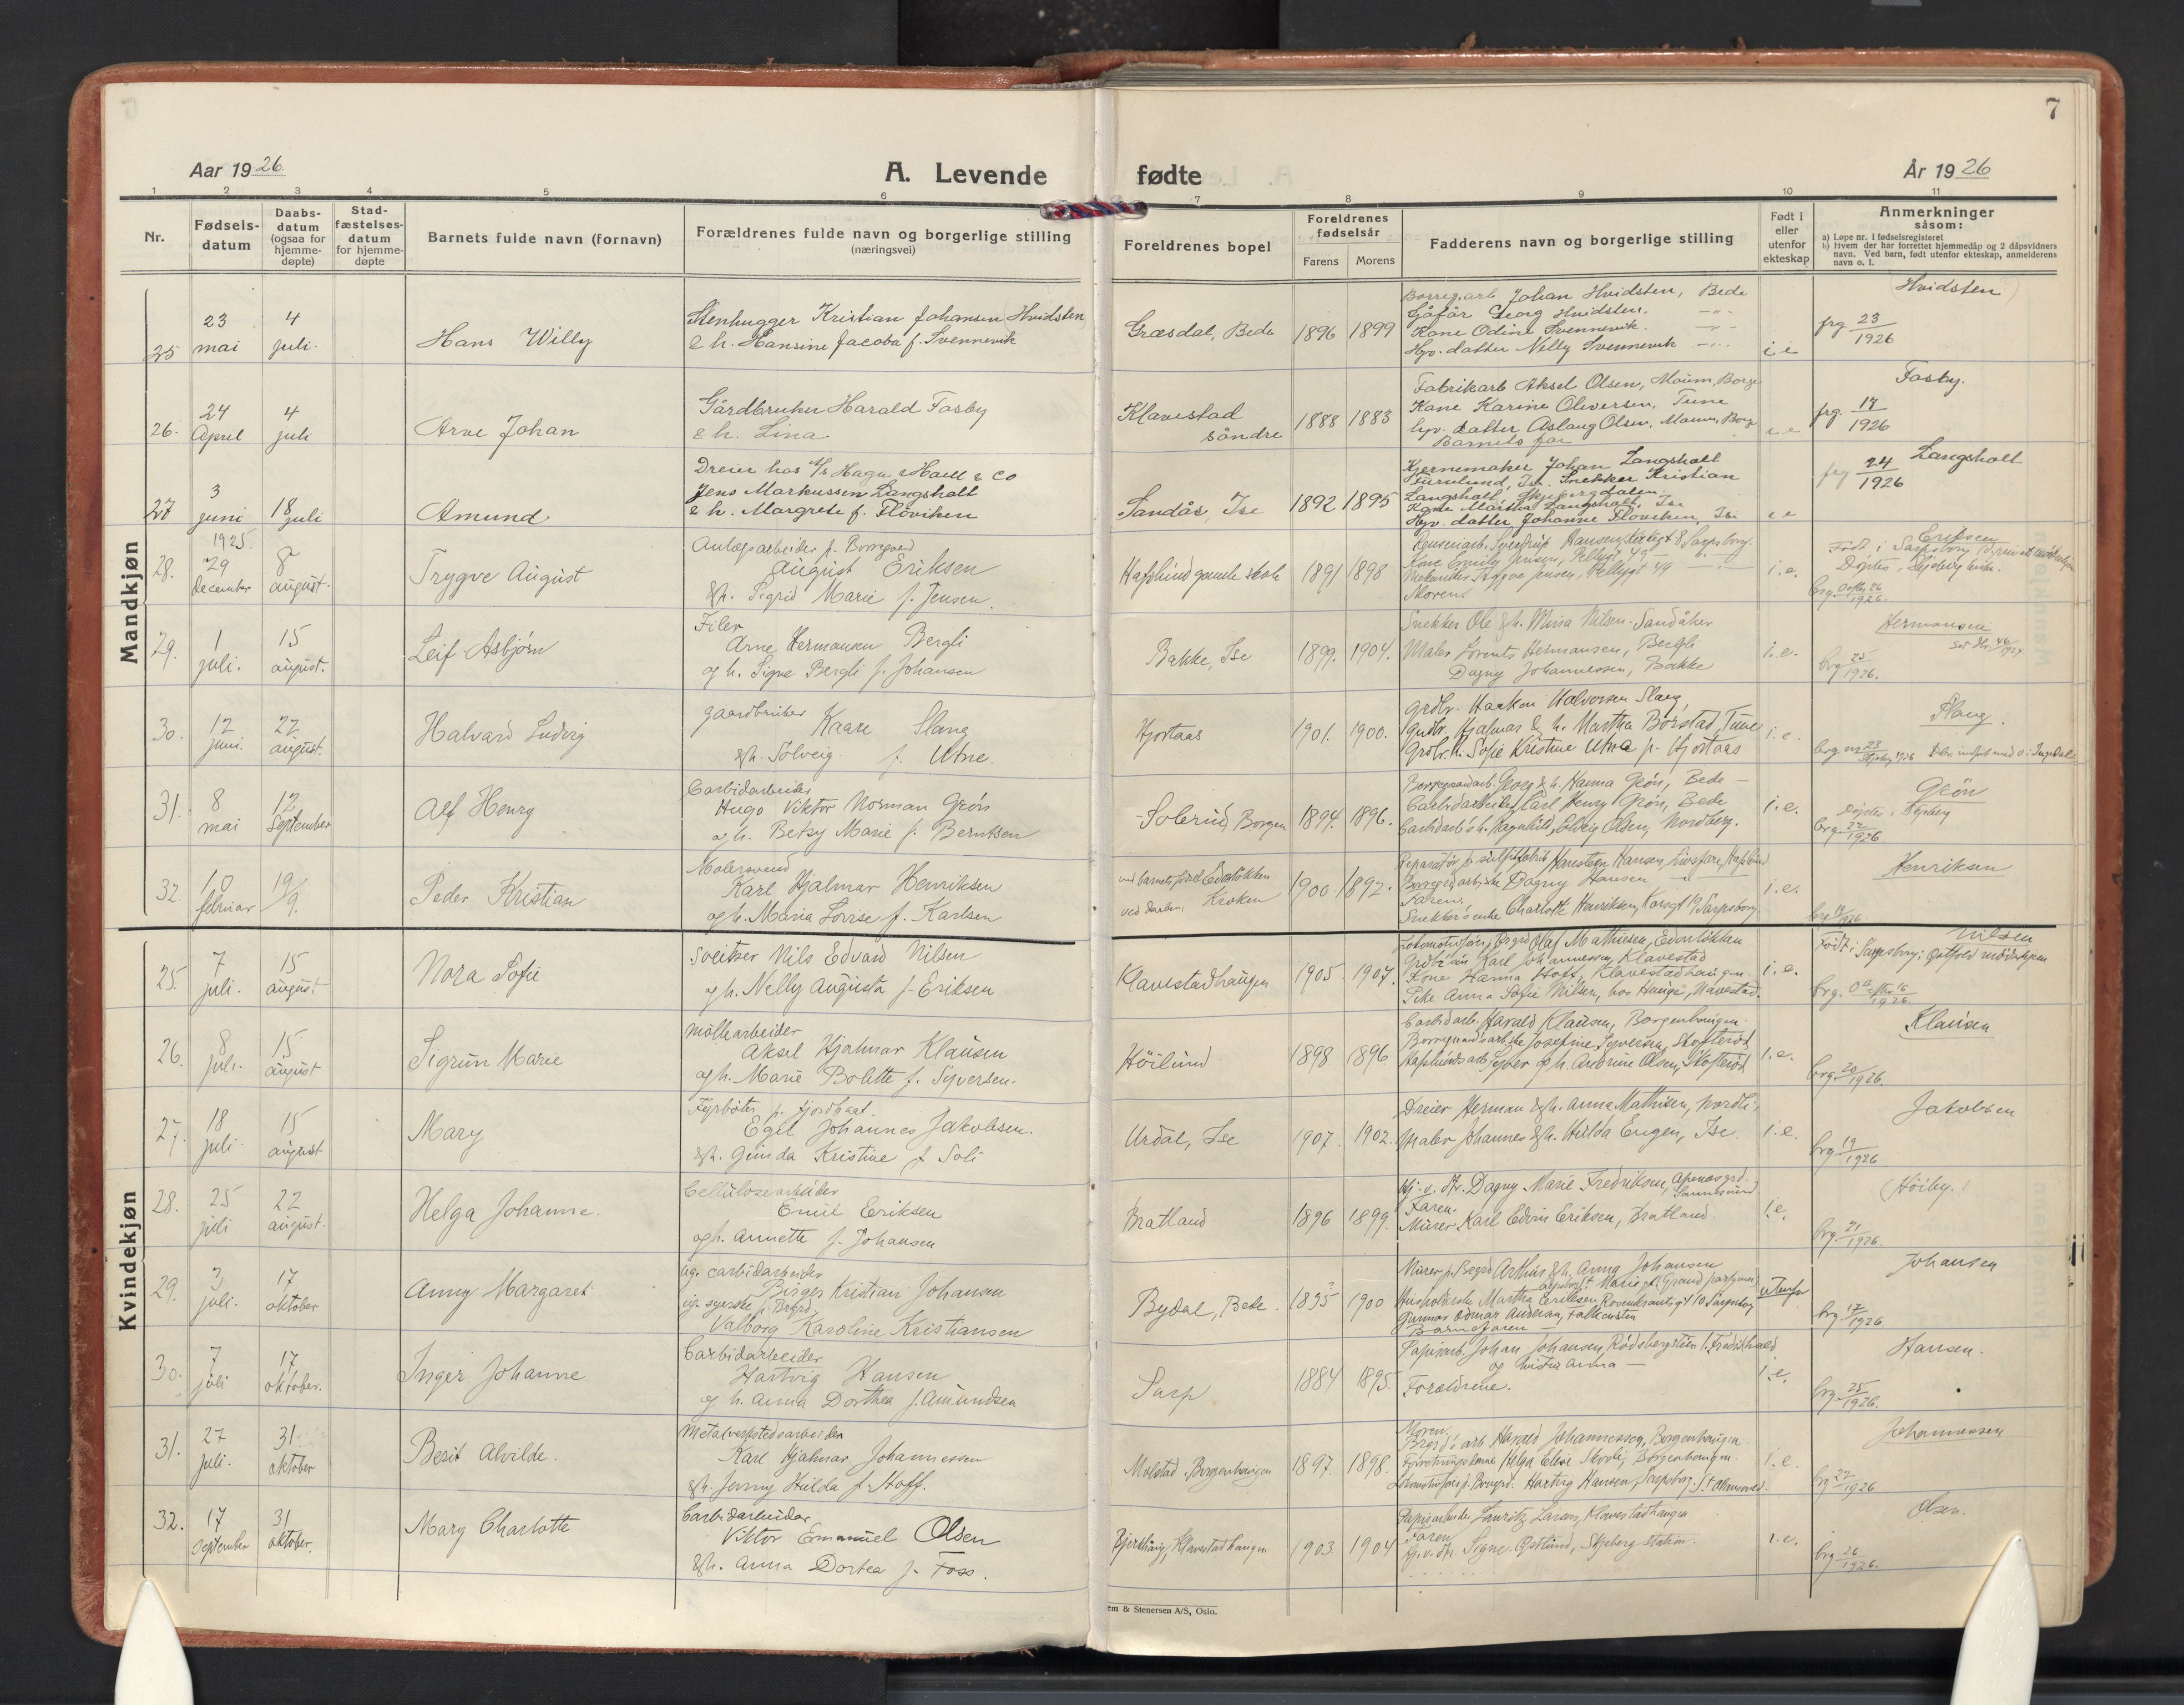 7
Aar 1926
A. Levende
fødte
År 1926
1 2 3 4 5 6 7 8 9 10 11
Nr.
Fødsels-
datum
Daabs-
datum
(ogsaa for
hjemme-
døpte)
Stad-
fæstelses-
datum
for hjemme-
døpte
Barnets fulde navn (fornavn)
Forældrenes fulde navn og borgerlige stilling
(næringsvei)
Foreldrenes bopel
Foreldrenes
fødselsår
Farens Morens
Fadderens navn og borgerlige stilling
Født i
eller
utenfor
ekteskap
Anmerkninger
såsom:
a) Løpe nr. i fødselsregisteret
b) Hvem der har forrettet hjemmedåp og 2 dåpsvidners
navn. Ved barn, født utenfor ekteskap, anmelderens
navn o. l.
Mandkjøn
25
23
mai
4
juli.
Hans Willy
Stenhugger Kristian Johansen (Hvidsten
& h. Hansine Jacoba f. Svennevik
Græsdal, Bede
1896 1899
Borreg.arb Johan Hvidsten, Bede
Gåfår Georg Hvidsten. -"-
Kone Odine Svennevik. -"-
Hjv. datter Nelly Svennevik -"-
i e
Hvidsten
frg 23/1926
26.
24
April
4
juli
Arve Johan
Gårdbruker Harald Fosby
& h. Lina
Klavestad
söndre
1888 1883
Fabrikarb Aksel Olsen, Moum, Borge
Kone Karine Oliversen, Tune
hjv. datter Aslaug Olsen, Moum, Borg
Barnets far
i e
Fosby.
frg. 17/1926
27
3
juni
18
juli
Amund
Dreier hos A/s Hagu & Co
Jens Markussen Langsholt
& h. Margrete f. Flöviken
Sandås, Ise
1892 1895
Kjernemaker Johan Langsholt
Furulund, Ise. Snekker Kristian
Langsholt, Skjebergdalen.
Kone Märtha Langsholt, Ise
Hjv. datter Johanne Floviken, Ise
i e
Langsholt
frg 24/1926
28.
1925.
29
December
8
august.
Trygve August
Anlægsarbeider p. Borregaard
August Eriksen
&h. Sigrid Marie f. Jensen.
Hafslund gamle skole
1891 1898
Kone Emily Jensen, Pellygt 49
Morens
i.e.
Eriksen
Født i Sarpsborg
Döptes i Skjeberg kirke.
1926.
29.
1
juli.
15
august.
Leif Asbjørn
Filer
Arne Hermansen Bergli
og h. Signe Bergli f. Johansen
Bakke, Ise
1899. 1904.
Snekker Ole &h. Mina Nilsen. Sandåker
Maler Lorents Hermansen, Bergli
Dagny Johannessen, Bakke
i.e.
Hermansen
brg 25/1926.
30.
12
juni.
22
august.
Halvard Ludvig
gaardbruker Kaare Slang
&h. Solveig f. Utne.
Hjortaas
1901. 1900.
Grdbr. Haakon Halvorsen Slang,
Grdbr. Hjalmar & h. Martha Börstad, Tune
Grdbr.h. Sofie Kristine Utne f. Hjortaas
i.e.
Slang.
31.
8
mai
12
September
Alf Henry
Carbidarbeider
Hugo Viktor Norman Grön
og h. Betsy Marie f. Berntsen
Solerud, Borgen
1894. 1896.
Borregaardarb. Georg & h. Hanna Grön, Bede -
Carbidarbeider Carl Henry Grön, Bede
Carbidarb's h. Ragnhild Solveig Olsen, Nordberg.
i.e.
Grön
Døptes i Skjeberg
brg. 22/1926
32.
10
februar
19/9.
Peder Kristian
Malersvend
Karl Hjalmar Henriksen
og h. Maria Lovise f. Karlsen
ved barnets födsel Edalökken
ved daaben, Kroken
1900. 1892.
Borregrd arbeiderske Dagny Hansen
Faren.
Snekker's enke Charlotte Henriksen, Korsgt 19 Sarpsborg
i.e.
Henriksen
brg 19/1926
Kvindekjøn
25.
7
juli.
15
august
Nora Sofie
Sveitser Nils Edvard Nilsen
og h. Nelly Augusta f. Eriksen
Klavestadhaugen
1905. 1907.
Lokomotivförer, Brgrd Olaf Mathiesen, Edonlökken
Grdbr.sön Karl Johannessen, Klavestad
Kone Hanna Hoff, Klavestadhaugen.
Pike Anna Sofie Nilsen, hos Hauge, Navestad.
i.e.
Nilsen
Født i Sarpsborg i Østfold mödrehjem
1926.
26.
8
juli.
15
august
Sigrun Marie
Möllearbeider
Aksel Hjalmar Klausen
og h. Marie Bolette f. Syversen.
Höilund
1898 1896
Carbidarb. Harald Klausen, Borgenhaugen.
Borregaard's arb.ske Josefine Syversen, Skofteröd
Hafslund's arb Syver og h. Andrine Olsen, Skofteröd
i.e.
Klausen
brg. 20/1926.
27.
18
juli.
15
august
Mary
Fyrböter p. fjordbaat.
Egil Johannes Jakobsen.
&h. Gunda Kristine f. Soli
Urdal, Ise
1907. 1902.
Dreier Herman &h. Anna Mathisen, Nordli,
Maler Johannes &h. Hulda Engen, Ise.
i.e.
Jakobsen
brg. 19/1926
28.
25
juli
22
august.
Helga Johanne.
Cellulosearbeider
Emil Eriksen
og h. Annette f. Johansen
Bratland.
1896 1899.
Hj. v. dtr. Dagny Marie Fredriksen, Apenæsgrd.
Sannesund
Faren.
Murer Karl Edvin Eriksen, Bratland.
i.e.
(Höiby.)
brg. 21/1926.
29.
3
juli.
17
oktober
Anny Margaret
ug. carbidarbeider
Birger Kristian Johansen
ug. syerske p. Brgrd.
Valborg Karoline Kristiansen
Bydal, Bede.
1895 1900
Murer p. Begrd Arthur &h. Anna Johansen
Husholderske Martha Eriksen Rosenkrantz gt 10 Sarpsborg
Gunnar Odmar Andersen, Falkensten
Barnefaren
utenfor
Johansen
brg. 17/1926
30.
7
juli
17
oktober.
Inger Johanne
Carbidarbeider
Hartvig Hansen
og h. Anna Dorthea f. Amundsen
Sarp
1884 1895.
Papirarb. Johan Johansen, Rödsbergsletten 1. Fredrikshald
og hustru Anna -
Forældrene.
i.e.
Hansen.
brg. 25/1926.
31.
27
juli.
31
oktober
Berit Alvilde.
Metalverkstedsarbeider
Karl Hjalmar Johannessen
&h. Jenny Hilda f. Hoff.
Molstad. Borgenhaugen
1897. 1898.
Moren.
Brgrd's arb Harald Johannessen, Borgenhaugen
Forretningskone Helga Elene Skovli, Borgenhaugen.
Lokomotivförer p. Borregrd. Hartvig Hansen, Sarpsborg.
i.e.
Johannessen
brg 22/1926
32.
17
September
31
oktober.
Mary Charlotte
Carbidarbeider
Viktor Emanuel Olsen
&h. Anna Dortea f. Foss.
Bjerkhaug, Klavestadhaugen
1903. 1904
Papirarbeider Lauritz Larsen, Klavestadhaugen
Faren
Hj.v. dtr Signe Østlund, Skjeberg station.
i.e.
Olsen.
brg 26/1926.
em & Stenersen A/S, Oslo.